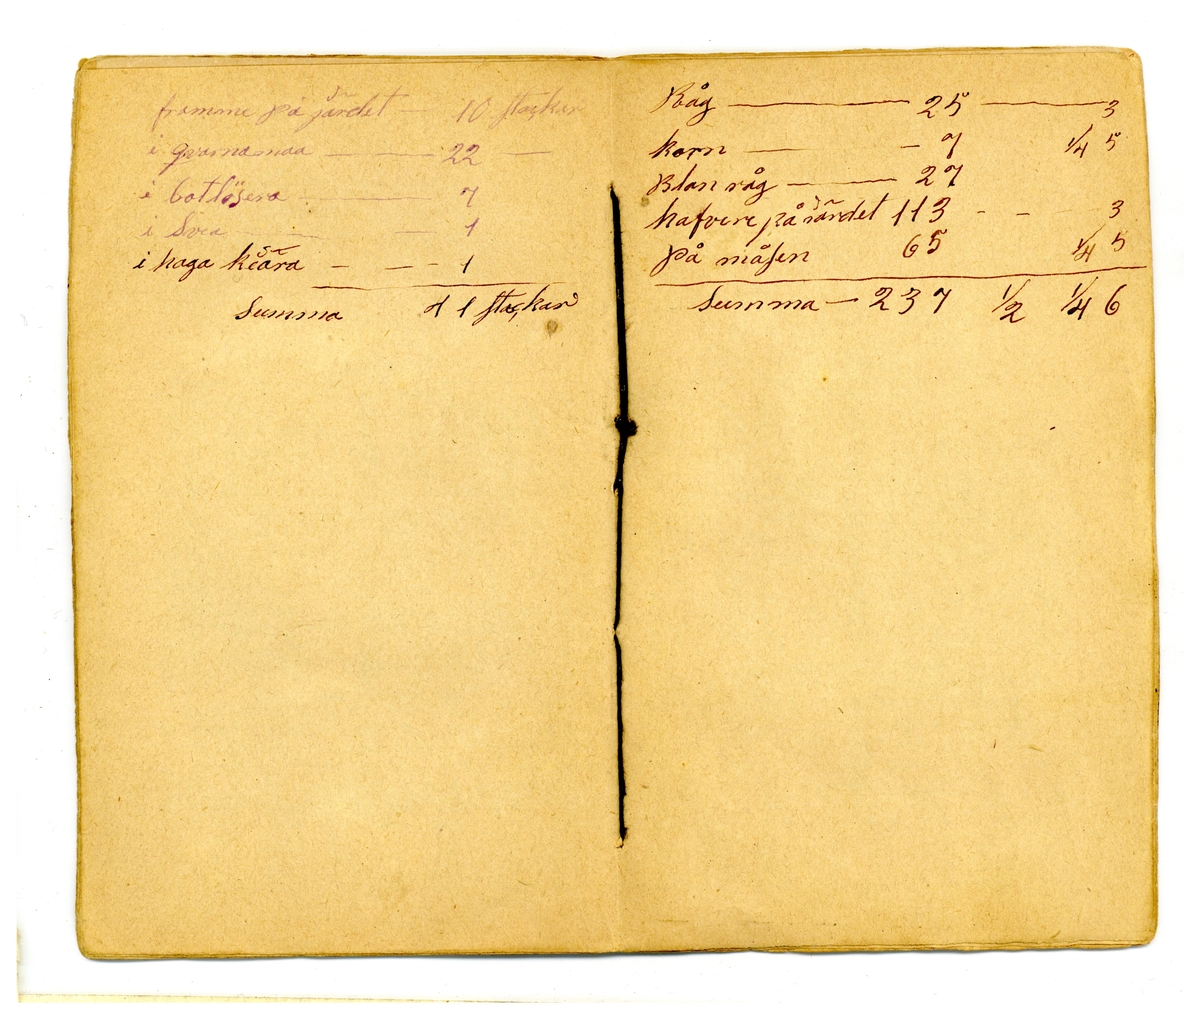 framme på järdet — 10 stackar
i qvarnamaa — 22 —
i botlösera — 7
i Svea — — 1
i haga këära — — — 1
Summa 41 stackar
Råg — 25 — 3
korn — — 7 1/4 5
Blan råg — 27
hafvere på järdet 113 - - 3
på måsen 65 1/4 5
Summa — 237 1/2 1/4 6